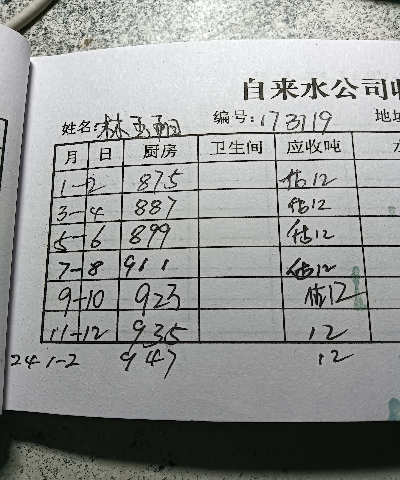 自来水公司收
姓名:林玉翔 编号:173119 地址
月 日 厨房 卫生间 应收吨 水
1-2 875 估12
3-4 887 估12
5-6 899 估12
7-8 911 估12
9-10 923 估12
11-12 935 12
24 1-2 947 12